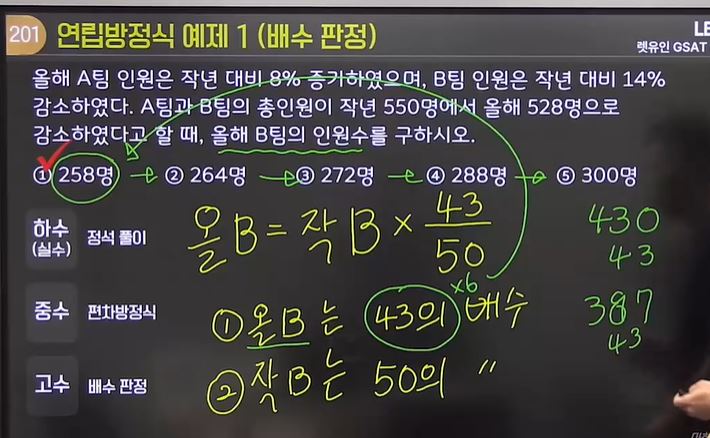 201 연립방정식 예제 1 (배수 판정)
LE
렛유인 GSAT
올해 A팀 인원은 작년 대비 8% 증가하였으며, B팀 인원은 작년 대비 14%
감소하였다. A팀과 B팀의 총인원이 작년 550명에서 올해 528명으로
감소하였다고 할 때, 올해 B팀의 인원수를 구하시오.
① 258명 ② 264명 ③ 272명 ④ 288명 ⑤ 300명
하수
(실수)
정석 풀이
올B = 작B × 43/50
430
43
387
43
중수 편차방정식
① 올B는 43의 배수
×6
고수 배수 판정
② 작B는 50의 〃